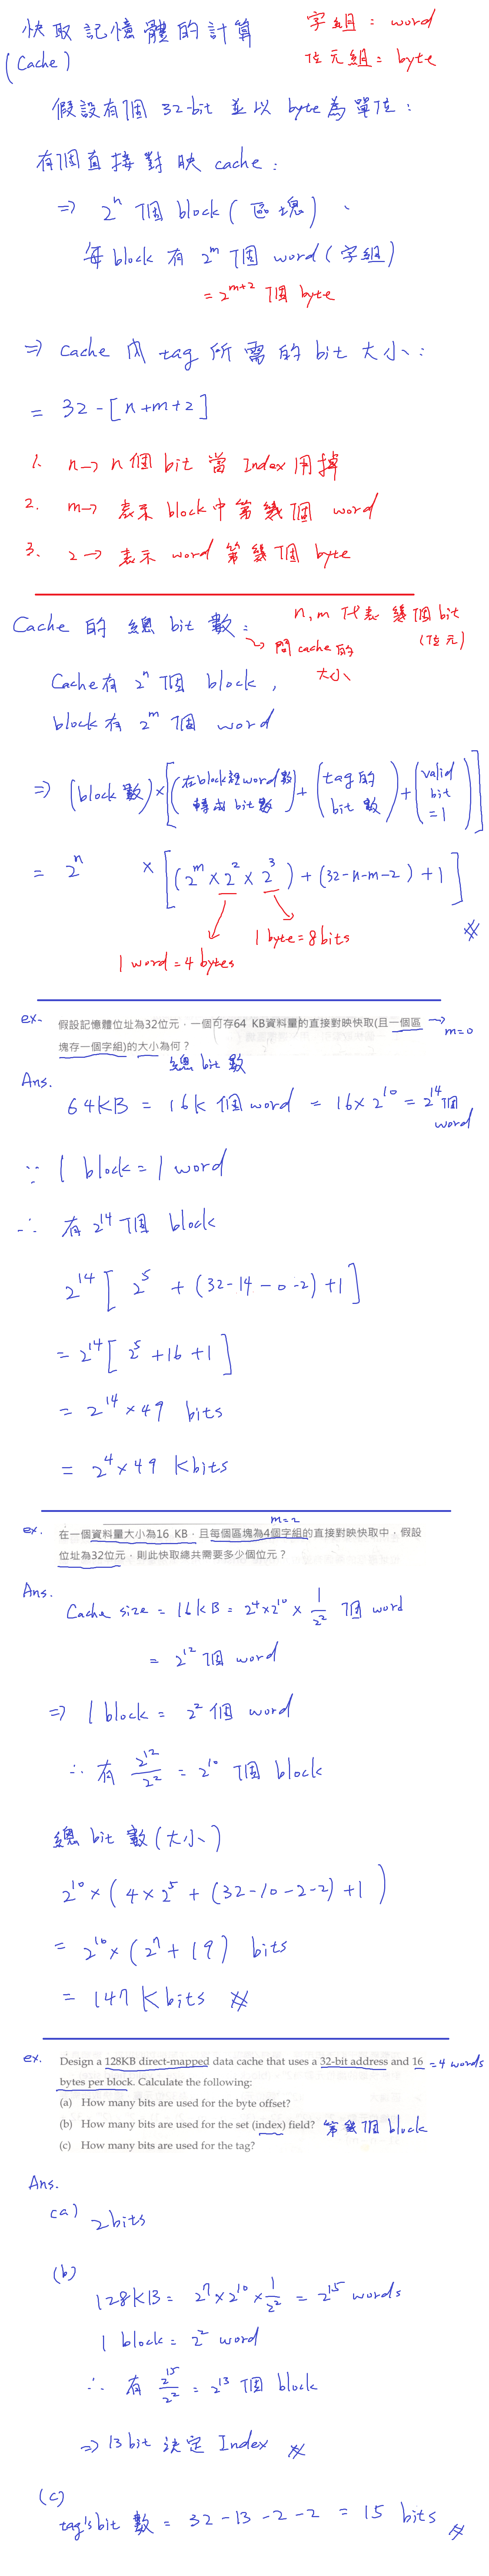 快取記憶體的計算
(Cache)
字組 : word
位元組 = byte
假設有個 32-bit 並以 byte 為單位 :
有個直接對映 cache :
⇒ 2^n 個 block (區塊)、
每 block 有 2^m 個 word (字組)
= 2^{m+2} 個 byte
⇒ Cache 內 tag 所需的 bit 大小 :
= 32 - [n+m+2]
1. n → n 個 bit 當 Index 用掉
2. m → 表示 block 中第幾個 word
3. 2 → 表示 word 第幾個 byte
Cache 的 總 bit 數 :
→ 問 cache 的
大小
n, m 代表 幾個 bit
(位元)
Cache 有 2^n 個 block ,
block 有 2^m 個 word
⇒ (block 數) × [(在 block 裡 word 數 轉成 bit 數) + (tag 的 bit 數) + (valid bit = 1)]
= 2^n × [(2^m × 2^2 × 2^3) + (32-n-m-2) + 1]
1 byte = 8 bits
1 word = 4 bytes
ex. 假設記憶體位址為32位元，一個可存64 KB資料量的直接對映快取(且一個區 → m=0
塊存一個字組)的大小為何？
總 bit 數
Ans.
64KB = 16K 個 word = 16 × 2^10 = 2^14 個
word
∵ 1 block = 1 word
∴ 有 2^14 個 block
2^14 [ 2^5 + (32-14-0-2) + 1 ]
= 2^14 [ 2^5 + 16 + 1 ]
= 2^14 × 49 bits
= 2^4 × 49 Kbits
m=2
ex. 在一個資料量大小為16 KB，且每個區塊為4個字組的直接對映快取中，假設
位址為32位元，則此快取總共需要多少個位元？
Ans.
Cache size = 16KB = 2^4 × 2^10 × 1/2^2 個 word
= 2^12 個 word
⇒ 1 block = 2^2 個 word
∴ 有 2^12/2^2 = 2^10 個 block
總 bit 數 (大小)
2^10 × ( 4 × 2^5 + (32-10-2-2) + 1 )
= 2^10 × (2^7 + 19) bits
= 147 K bits #
ex. Design a 128KB direct-mapped data cache that uses a 32-bit address and 16 = 4 words
bytes per block. Calculate the following:
(a) How many bits are used for the byte offset?
(b) How many bits are used for the set (index) field? 第幾個 block
(c) How many bits are used for the tag?
Ans.
(a) 2 bits
(b)
128KB = 2^7 × 2^10 × 1/2^2 = 2^15 words
1 block = 2^2 word
∴ 有 2^15/2^2 = 2^13 個 block
⇒ 13 bit 決定 Index #
(c)
tag's bit 數 = 32 - 13 - 2 - 2 = 15 bits #